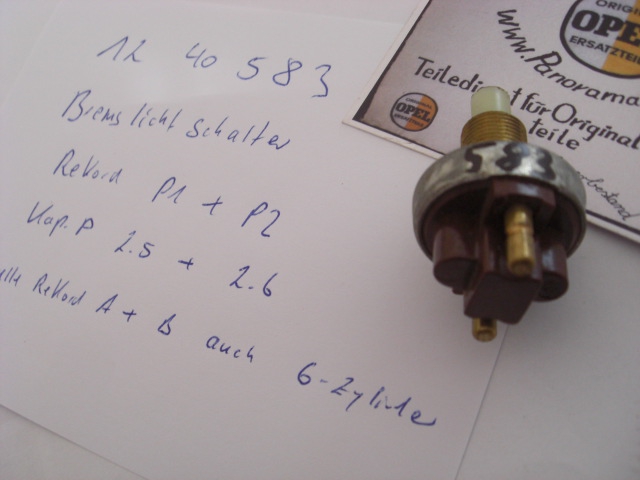 12 40 583
Bremslicht Schalter
Rekord P1 + P2
Kap. P 2.5 + 2.6
alle Rekord A + B auch 6-Zylinder
ORIGINAL
OPEL
ERSATZTEILE
www.Panorama
Teiledienst für Original
teile
OPEL
583